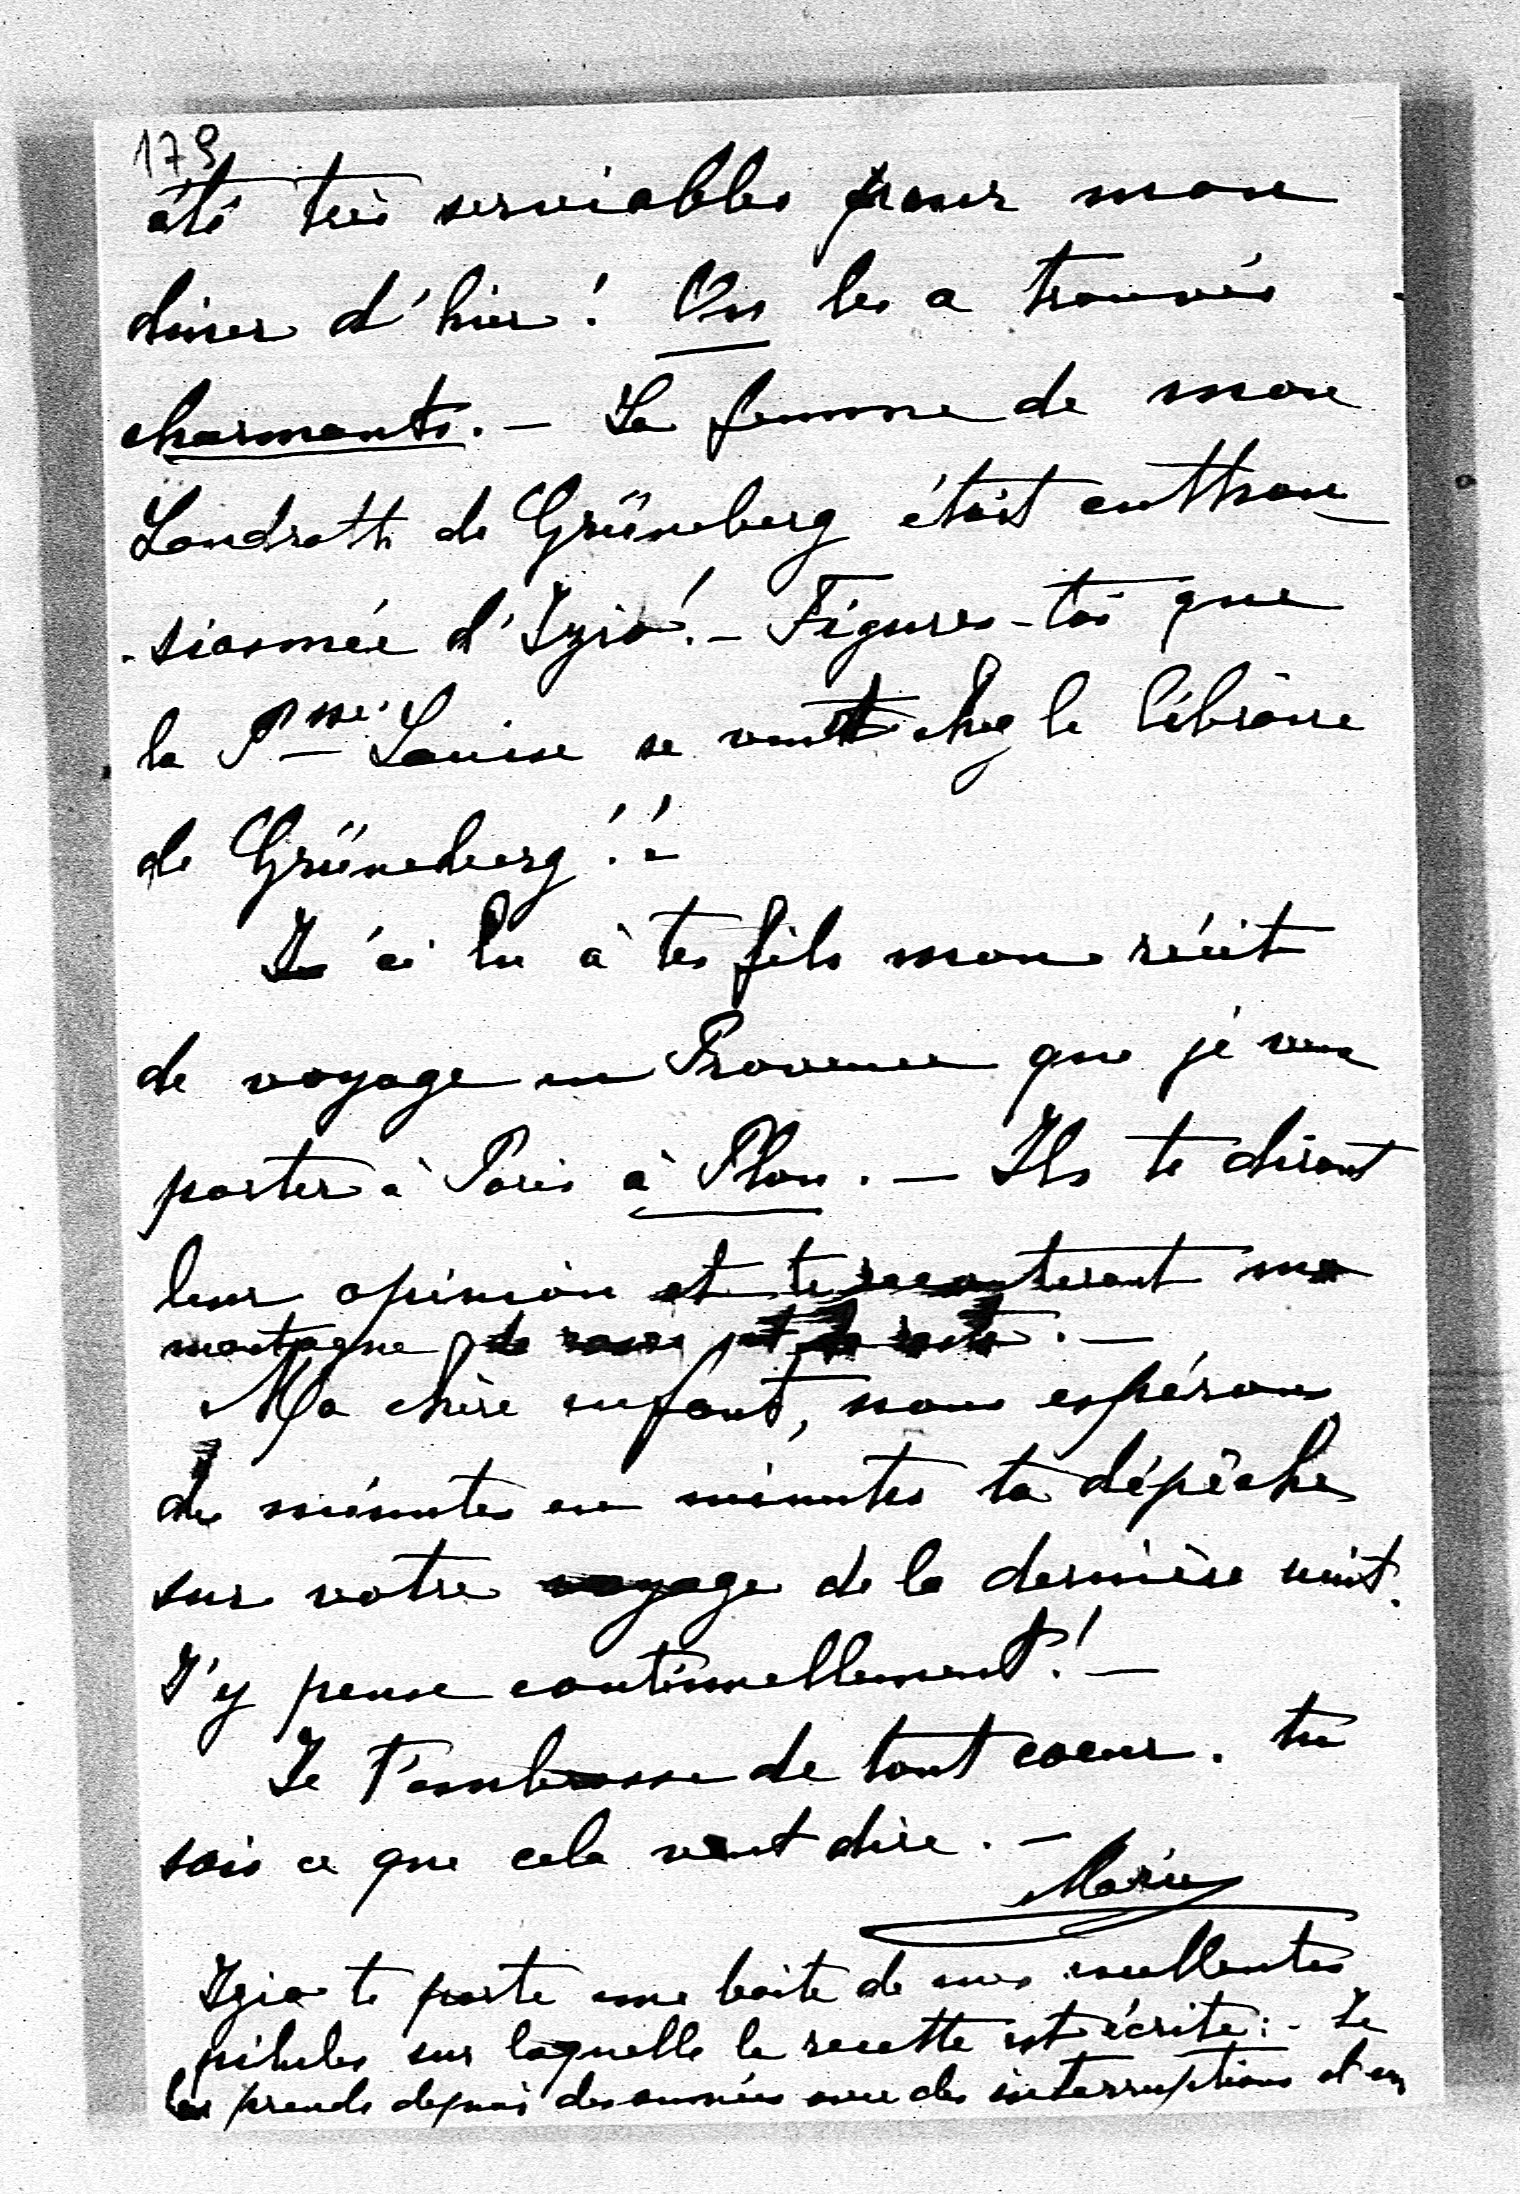 179
été très serviables pour mon
diner d'hier! On les a trouvés
charmants. — La femme de mon
Landrath de Grüneberg était enthou-
-siasmée d'Izio! — Figures-toi que
la Psse Louise se vent chez le libraire
de Grüneberg!!
J'ai lu à tes fils mon récit
de voyage en Provence que je veux
porter à Paris à Plon. — Ils te diront
leur opinion et te raconteront ma
montagne de roses et le reste. —
Ma chère enfant, nous espérons
de minutes en minutes ta dépêche
sur votre voyage de la dernière nuit.
J'y pense continuellement! —
Je t'embrasse de tout coeur. tu
sais ce que cela veut dire. —
Marie
Izio te porte une boite de mes excellentes
pilules sur laquelle la recette est écrite: - Je
les prends depuis des années avec des interruptions et en